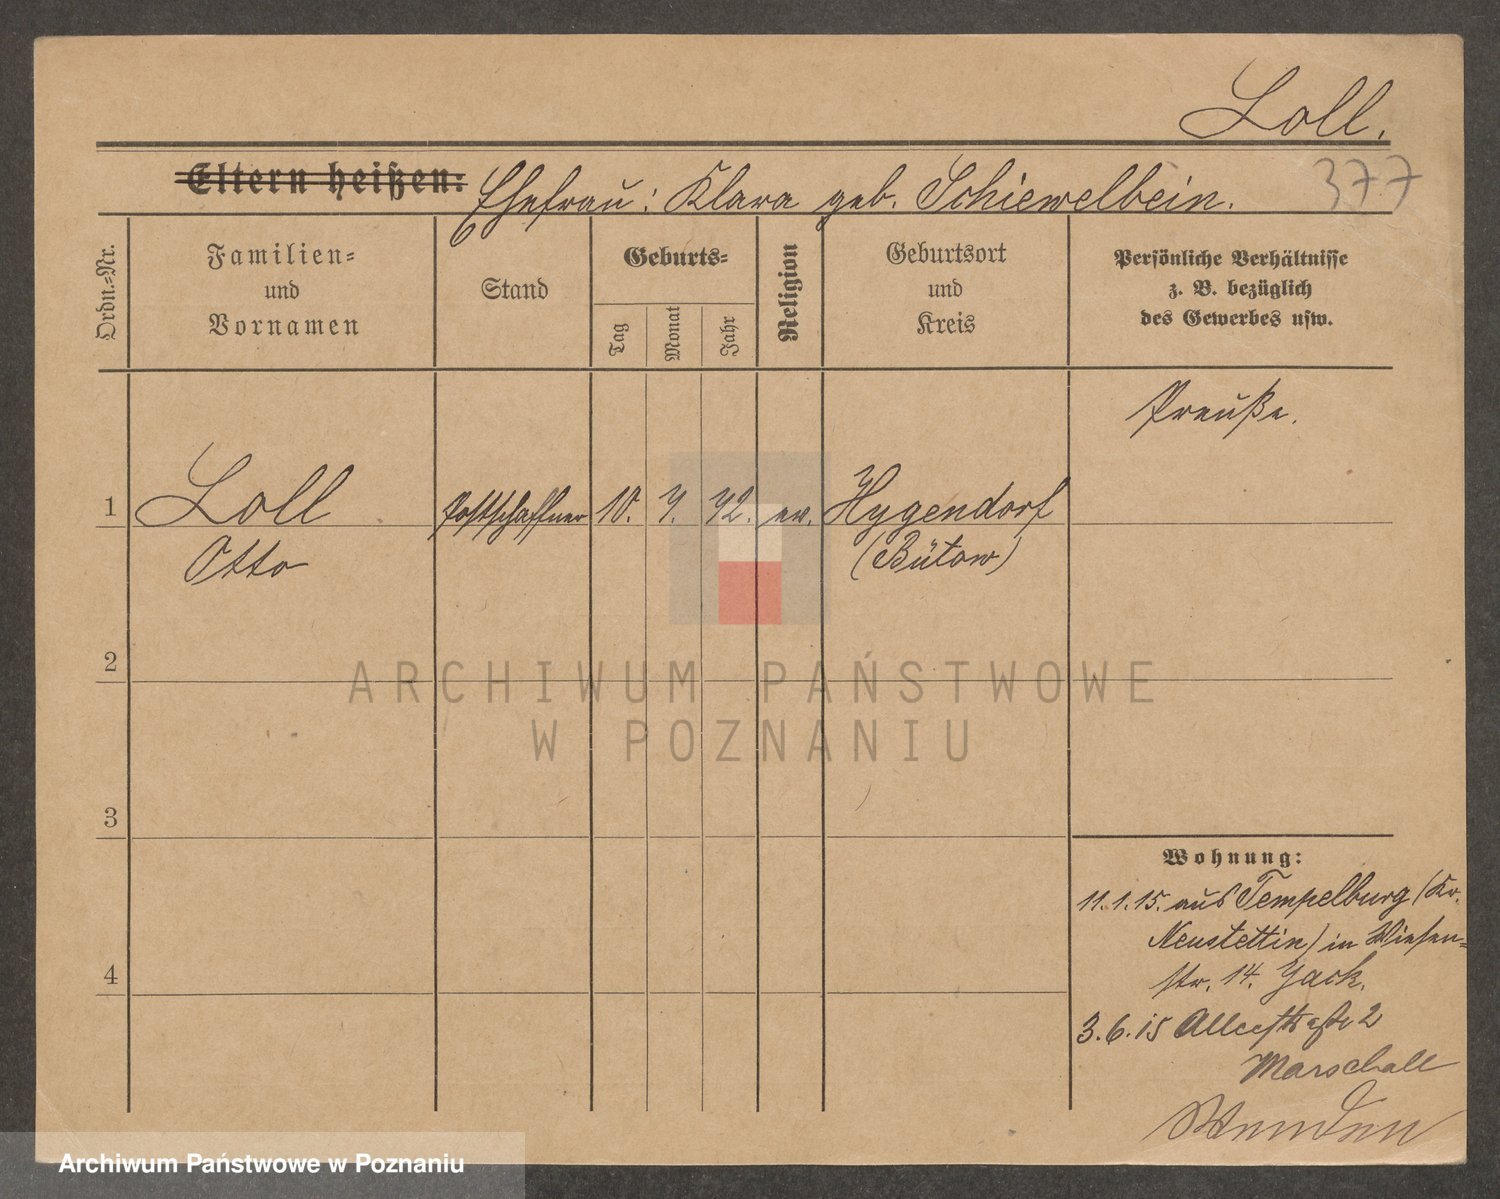 Loll.
Eltern heißen: Ehefrau: Klara geb. Schiewelbein.
377
Ordn.-Nr.
Familien-
und
Vornamen
Stand
Geburts-
Tag
Monat
Jahr
Religion
Geburtsort
und
Kreis
Persönliche Verhältnisse
z. B. bezüglich
des Gewerbes usw.
Preuße.
1 Loll Postschaffner 10. 7. 72. ev. Hygendorf
Otto (Bütow)
2
ARCHIWUM PAŃSTWOWE
W POZNANIU
3
Wohnung:
11.1.15. aus Tempelburg (Kr.
Neustettin) in Wiesen-
4
str. 14. Jack.
3.6.15 Alleestraße 2
Marschall
Archiwum Państwowe w Poznaniu